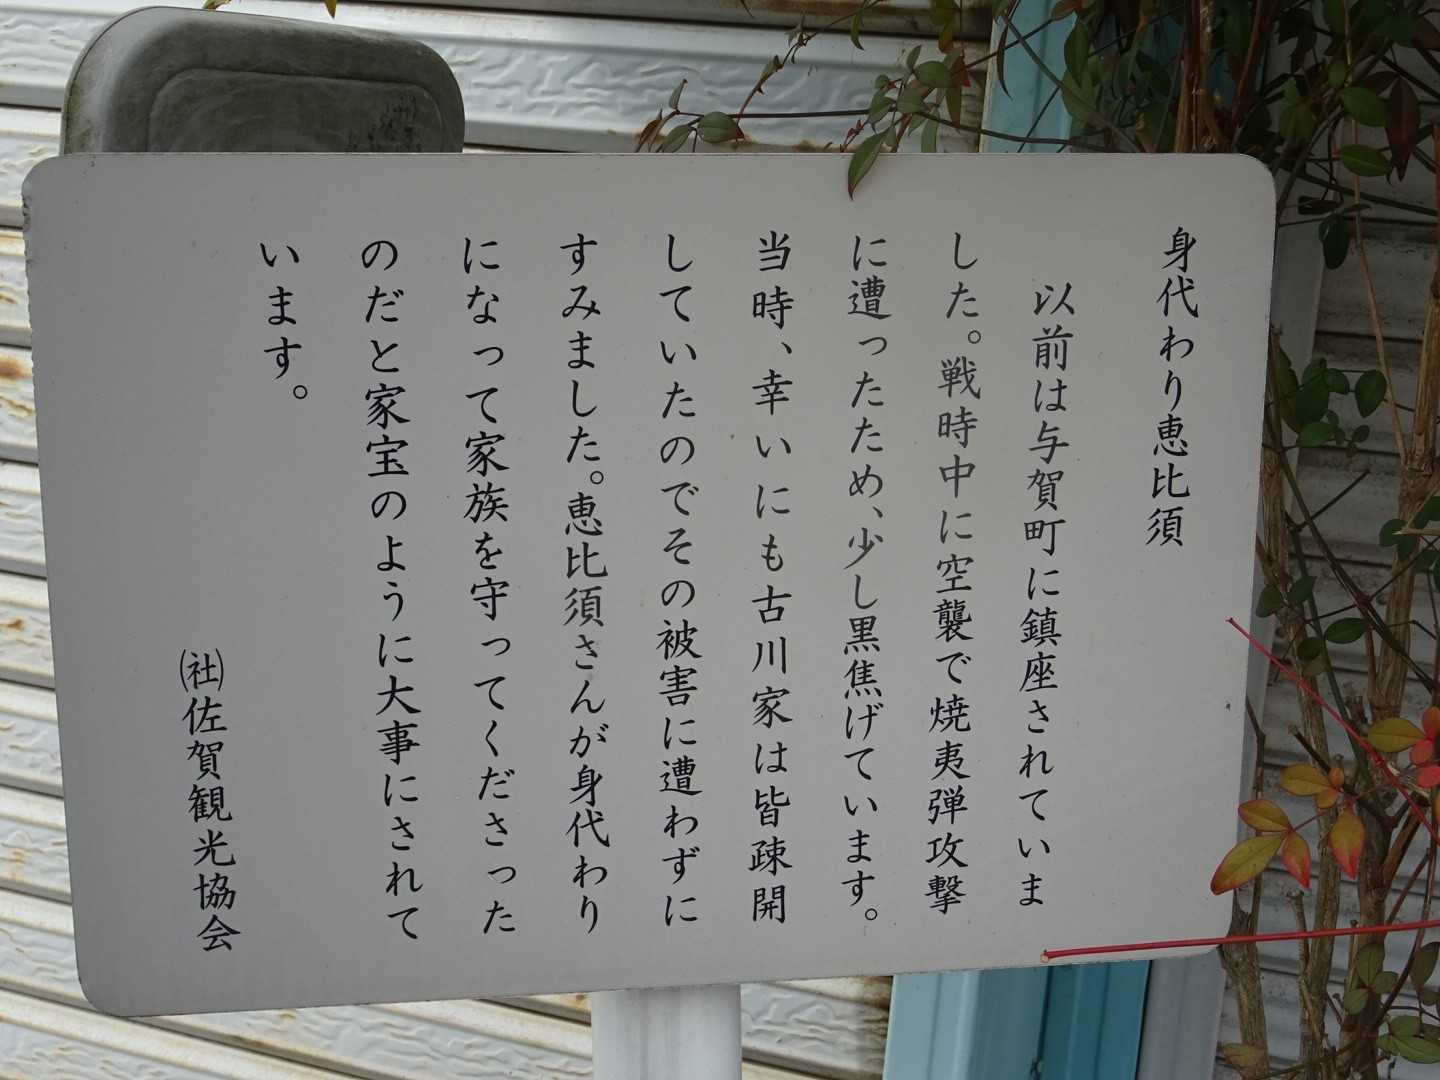 身代わり恵比須
以前は与賀町に鎮座されていま
した。戦時中に空襲で焼夷弾攻撃
に遭ったため、少し黒焦げています。
当時、幸いにも古川家は皆疎開
していたのでその被害に遭わずに
すみました。恵比須さんが身代わり
になって家族を守ってくださった
のだと家宝のように大事にされて
います。
(社)佐賀観光協会